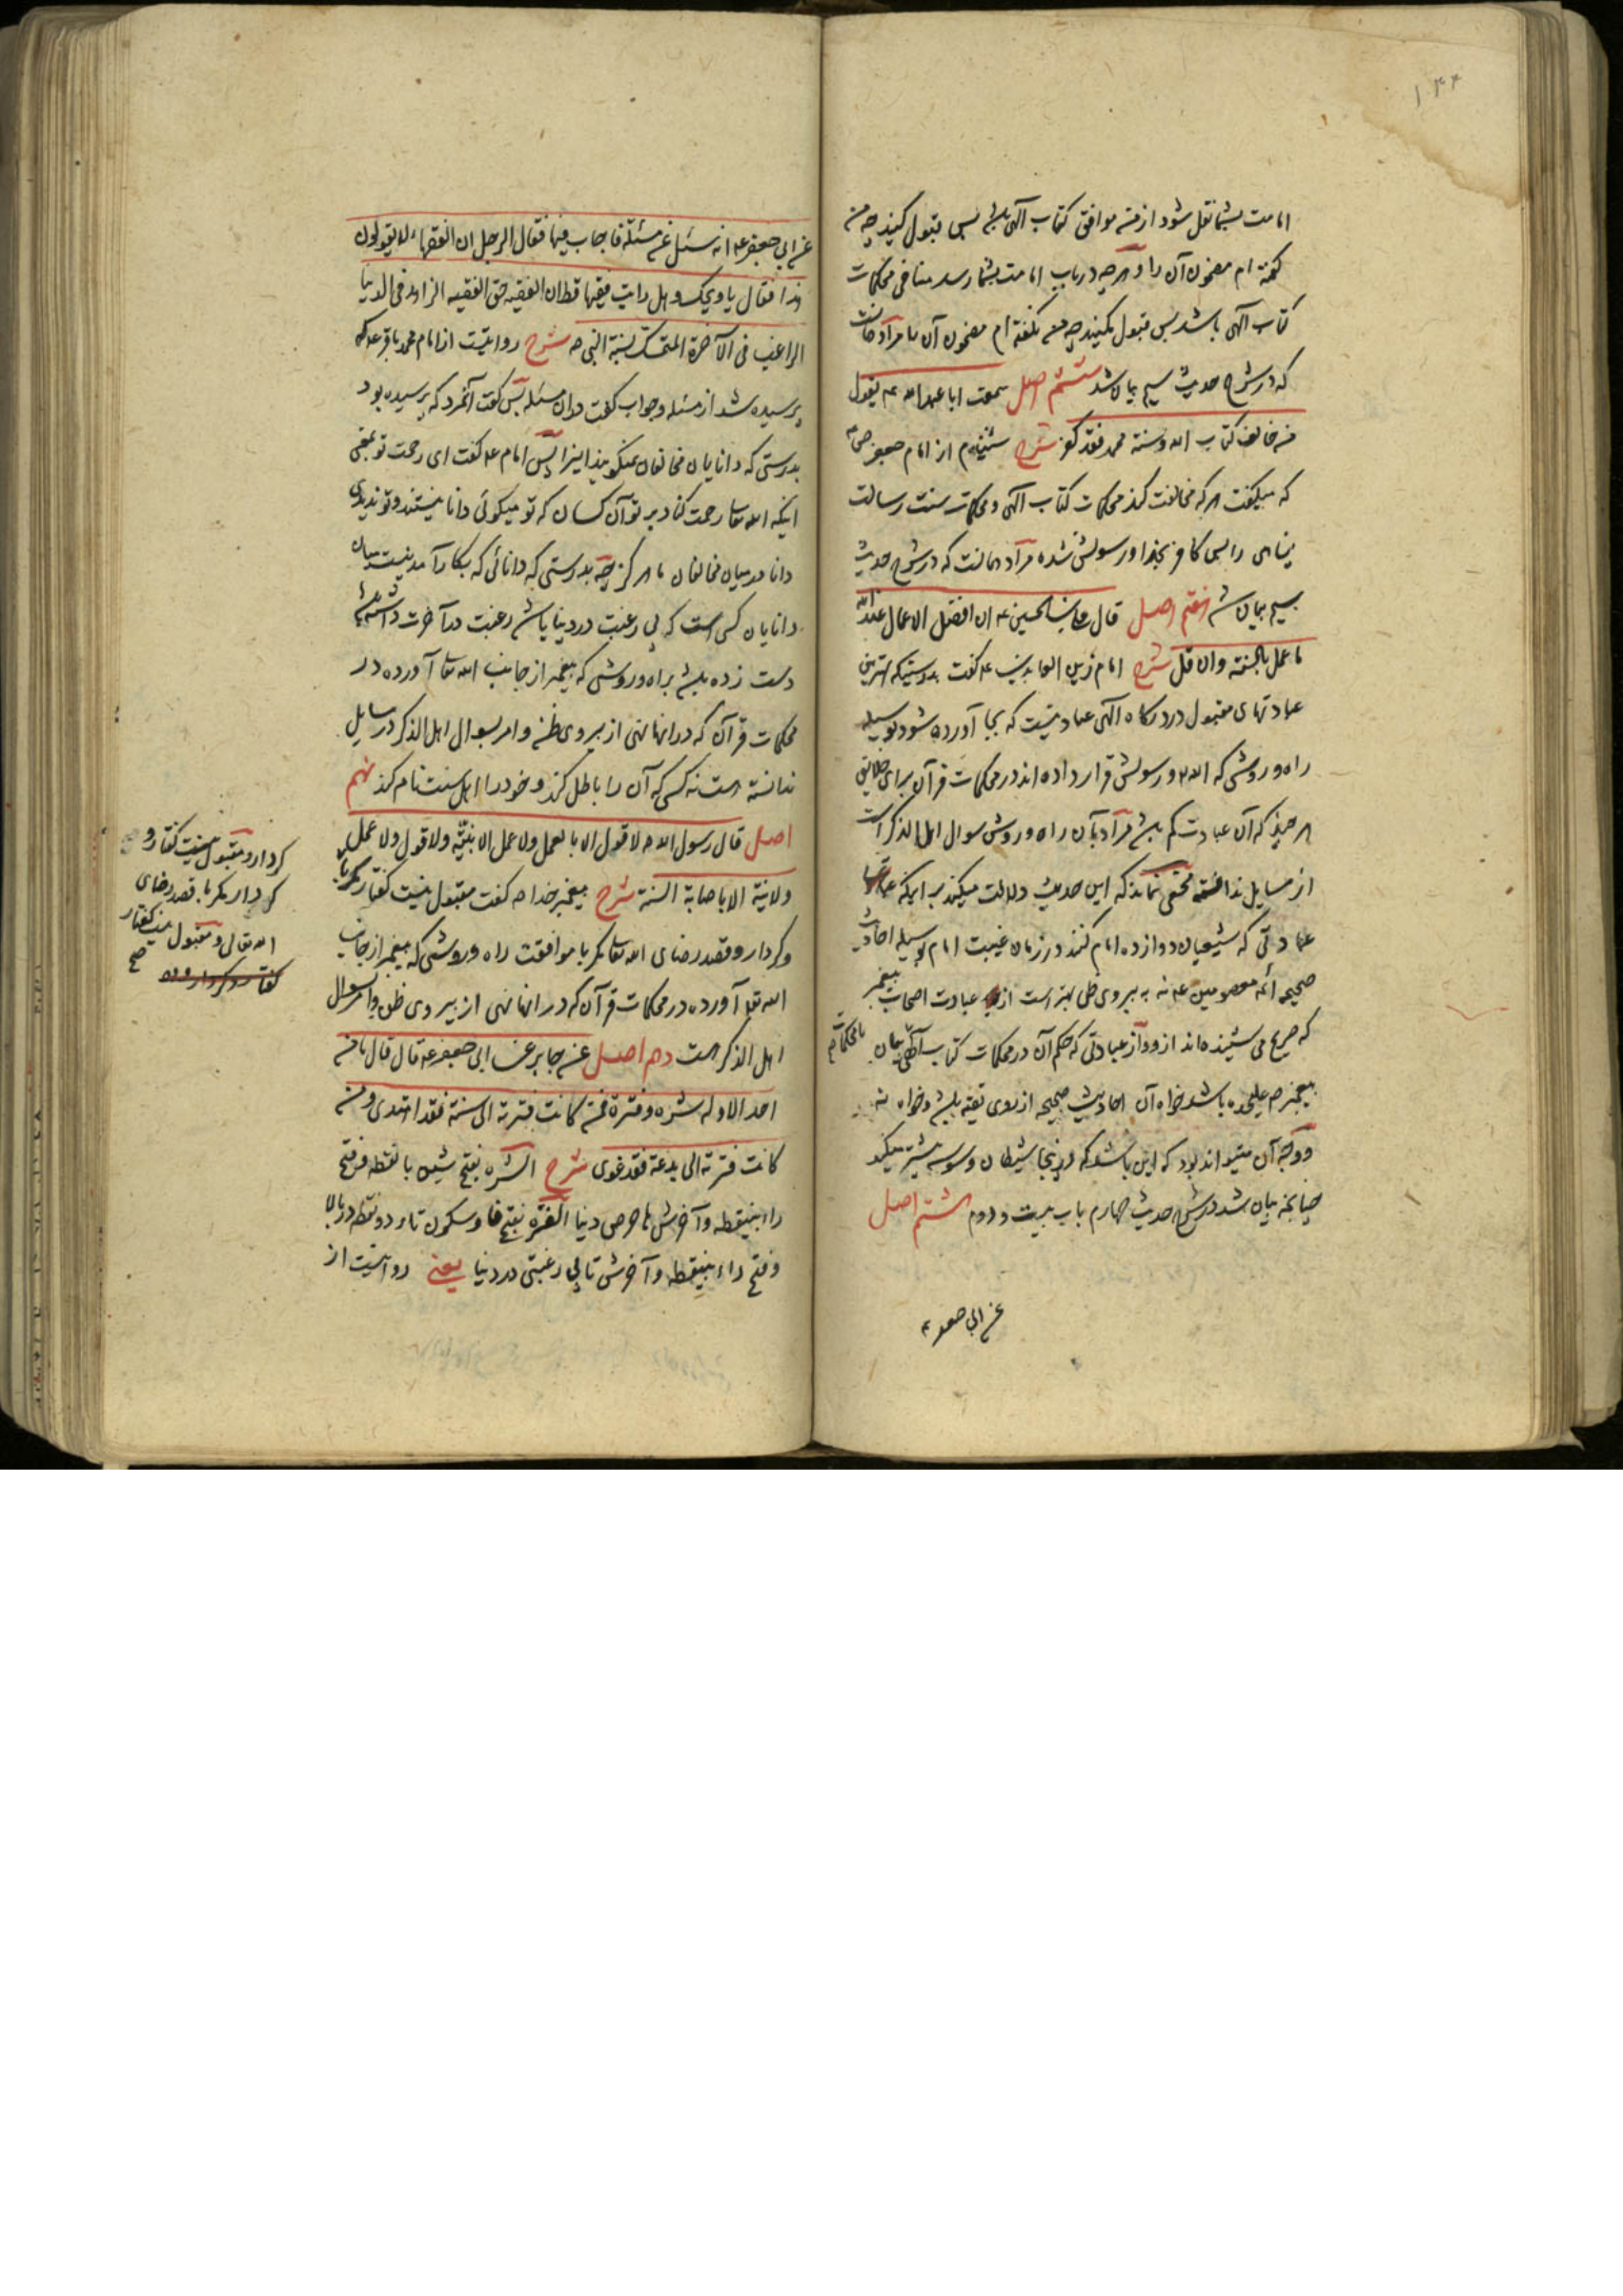 ۱۴۴
امامت بشما نقل شود از من موافق کتاب الهی باشد پس قبول کنید چه من
گفته ام مضمون آن را و هر چه در باب امامت بشما رسد منافی محکمات
کتاب الهی باشد پس قبول مکنید چه من نگفته ام مضمون آن را مراد همانست
که در شرح حدیث سیم بیان شد ششم اصل سمعت ابا عبدالله ع يقول
من خالف کتاب الله وسنة محمد فقد کفر شرح شنیدم از امام جعفر صادق ع
که میگفت هر که مخالفت کند محکمات کتاب الهی و محکمات سنت رسالت
پناهی را پس کافر بخدا و رسولش شده مراد همانست که در شرح حدیث
سیم بیان شد هفتم اصل قال علی بن الحسین ع ان افضل الاعمال عند الله
ما عمل بالسنة وان قل شرح امام زین العابدین ع گفت بدرستیکه بهترین
عبادتهای مقبول در درگاه الهی عبادتیست که بجا آورده شود بوسیله
راه و روشی که الله و رسولش قرار داده اند در محکمات قرآن برای خلایق
هر چند که آن عبادت کم باشد مراد بآن راه و روش سوال اهل الذکر است
از مسایل ندانسته مخفی نماند که این حدیث دلالت میکند بر اینکه
عبادتی که شیعیان دوازده امام کنند در زمان غیبت امام بوسیله احادیث
صحیحه ائمه معصومین ع نه به پیروی ظن بهتر است از عبادت اصحاب پیغمبر
که صریح می شنیده اند از او و از عبادتی که حکم آن در محکمات کتاب الهی
پیغمبر ص علیحده باشد خواه آن احادیث صحیحه از روی تقیه باشد و خواه نه
و وجه آن میتواند بود که این باشد که در اینجا شیطان وسوسه بیشتر میکند
چنانچه بیان شد در شرح حدیث چهارم باب بیست و دوم هشتم اصل
عن ابی جعفر ع
عن ابی جعفر ع انه سئل عن مسئلة فاجاب فيها فقال الرجل ان الفقهاء لا يقولون
هذا فقال يا ويحك وهل رايت فقيها قط ان الفقيه حق الفقيه الزاهد فی الدنيا
الراغب فی الآخرة المتمسك بسنة النبی ص شرح روایتست از امام محمد باقر ع که
پرسیده شد از مسئله و جواب گفت در آن مسئله پس گفت آنمرد که پرسیده بود
بدرستی که دانایان مخالفان نمیگویند اینرا پس امام ع گفت ای رحمت تو بمعنی
اینکه الله تعا رحمت کناد بر تو آن کسان که تو میگوئی دانا نیستند و تو ندیدی
دانا در میان مخالفان را هرگز چه بدرستی که دانائی که بکار آمدنیست میان
دانایان کسی است که بی رغبت در دنیا باشد رغبت در آخرت داشته باشد
دست زده باشد براه و روشی که پیغمبر از جانب الله تعا آورده در
محکمات قرآن که در آنها نهی از پیروی ظن و امر بسوال اهل الذکر در مسایل
ندانسته است نه کسی که آن را باطل کند و خود را اهل سنت نام کند نهم
اصل قال رسول الله ص لا قول الا بالعمل ولا عمل الا بنية ولا قول ولا عمل
ولا نية الا باصابة السنة شرح پیغمبر خدا ص گفت مقبول نیست گفتار مگر با
و کردار و قصد رضای الله تعا مگر با موافقت راه و روشی که پیغمبر از جانب
الله تعا آورده در محکمات قرآن که در آنها نهی از پیروی ظن و امر بسوال
اهل الذکر است دهم اصل عن جابر عن ابی جعفر ع قال قال ما من
احد الا وله شره وفترة فمن کانت فترته الی سنة فقد اهتدی ومن
کانت فترته الی بدعة فقد غوی شرح الشره بفتح شین با نقطه و فتح
راء بینقطه و آخرش ها حرص دنیا الفترة بفتح فا و سکون تاء دو نقطه در بالا
و فتح راء بینقطه و آخرش تا بی رغبتی در دنیا یعنی روایتست از
کردار و مقبول نیست گفتار و
کردار مگر با قصد رضای
الله تعالی و مقبول نیست گفتار
صح